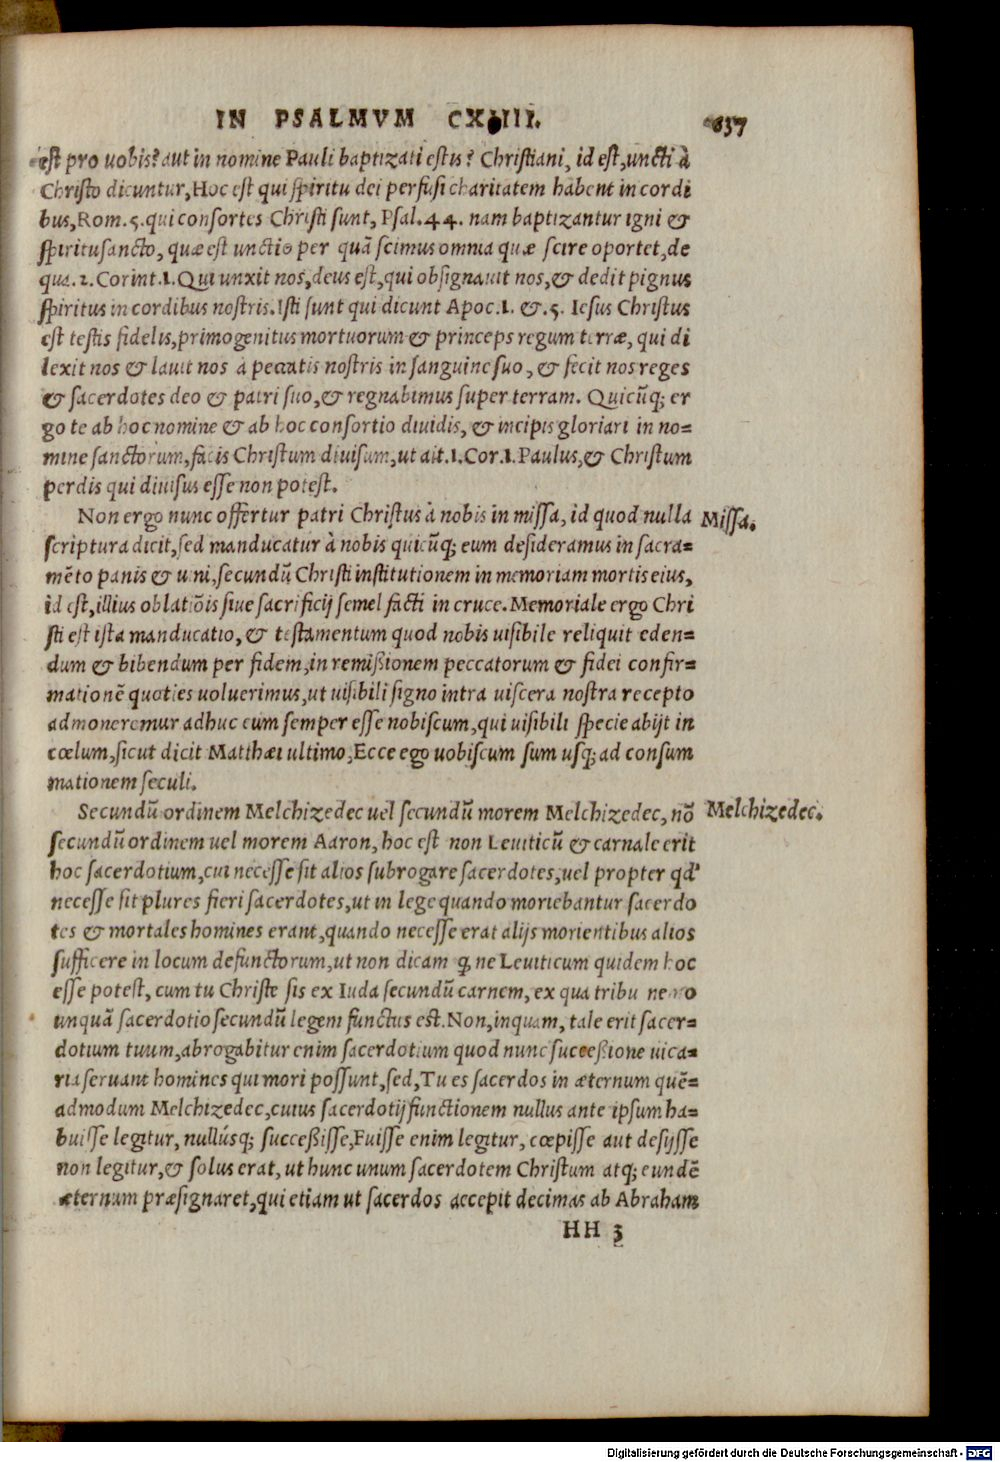 IN PSALMVM CXIIII. 637
est pro uobis? aut in nomine Pauli baptizati estis? Christiani, id est, uncti à
Christo dicuntur, Hoc est qui spiritu dei perfusi charitatem habent in cordi
bus, Rom. 5. qui consortes Christi sunt, Psal. 44. nam baptizantur igni &
spiritusancto, quæ est unctio per quã scimus omnia quæ scire oportet, de
qua. 2. Corint. 1. Qui unxit nos, deus est, qui obsignauit nos, & dedit pignus
spiritus in cordibus nostris. Isti sunt qui dicunt Apoc. 1. &. 5. Iesus Christus
est testis fidelis, primogenitus mortuorum & princeps regum terræ, qui di
lexit nos & lauit nos à peccatis nostris in sanguine suo, & fecit nos reges
& sacerdotes deo & patri suo, & regnabimus super terram. Quicũq; er
go te ab hoc nomine & ab hoc consortio diuidis, & incipis gloriari in no=
mine sanctorum, facis Christum diuisum, ut ait. 1. Cor. 1. Paulus, & Christum
perdis qui diuisus esse non potest.
Non ergo nunc offertur patri Christus à nobis in missa, id quod nulla
Missa.
scriptura dicit, sed manducatur à nobis quicũq; eum desideramus in sacra=
mẽto panis & uini, secundũ Christi institutionem in memoriam mortis eius,
id est, illius oblatiõis siue sacrificij semel facti in cruce. Memoriale ergo Chri
sti est ista manducatio, & testamentum quod nobis uisibile reliquit eden=
dum & bibendum per fidem, in remißionem peccatorum & fidei confir=
mationẽ quoties uoluerimus, ut uisibili signo intra uiscera nostra recepto
admoneremur adhuc eum semper esse nobiscum, qui uisibili specie abijt in
cœlum, sicut dicit Matthæi ultimo, Ecce ego uobiscum sum usq; ad consum
mationem seculi.
Secundũ ordinem Melchizedec uel secundũ morem Melchizedec, nõ
Melchizedec.
secundũ ordinem uel morem Aaron, hoc est non Leuiticũ & carnale erit
hoc sacerdotium, cui necesse sit alios subrogare sacerdotes, uel propter qd'
necesse sit plures fieri sacerdotes, ut in lege quando moriebantur sacerdo
tes & mortales homines erant, quando necesse erat alijs morientibus alios
sufficere in locum defunctorum, ut non dicam ꝙ ne Leuiticum quidem hoc
esse potest, cum tu Christe sis ex Iuda secundũ carnem, ex qua tribu nemo
unquã sacerdotio secundũ legem functus est. Non, inquam, tale erit sacer=
dotium tuum, abrogabitur enim sacerdotium quod nunc succeßione uica=
ria seruant homines qui mori possunt, sed, Tu es sacerdos in æternum quẽ=
admodum Melchizedec, cuius sacerdotij functionem nullus ante ipsum ha=
buisse legitur, nullúsq; succeßisse, Fuisse enim legitur, cœpisse aut desijsse
non legitur, & solus erat, ut hunc unum sacerdotem Christum atq; eundẽ
æternum præsignaret, qui etiam ut sacerdos accepit decimas ab Abraham
HH 3
Digitalisierung gefördert durch die Deutsche Forschungsgemeinschaft - DFG